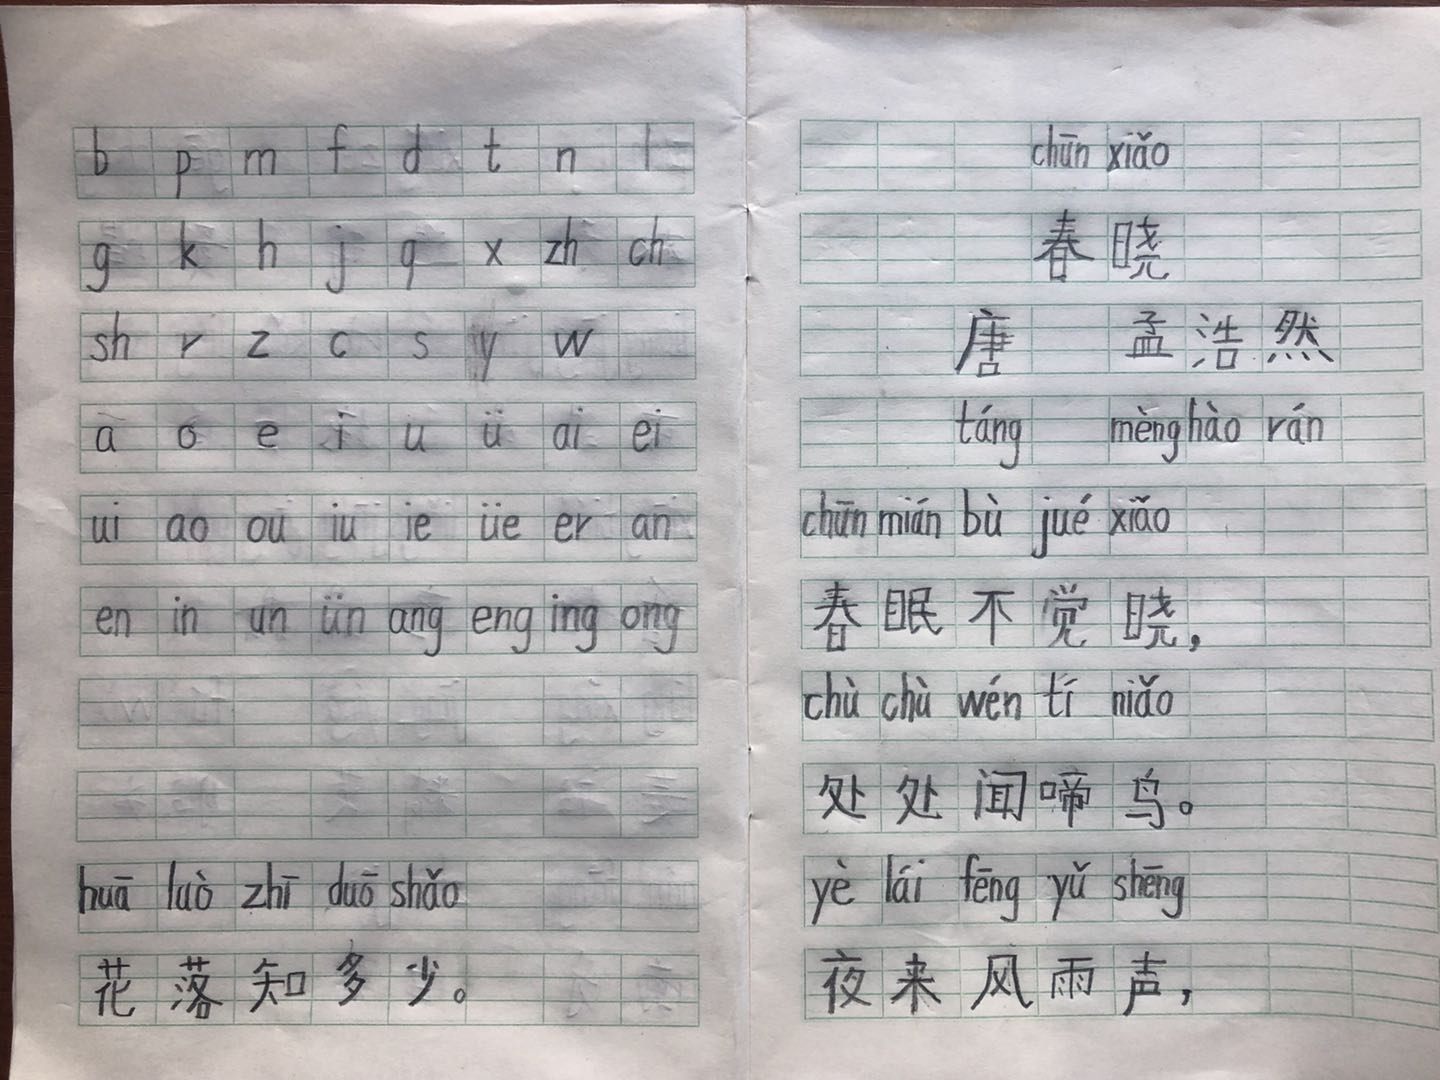 b p m f d t n l
g k h j q x zh ch
sh r z c s y w
a o e i u ü ai ei
ui ao ou iu ie üe er an
en in un ün ang eng ing ong
huā luò zhī duō shǎo
花落知多少。
chūn xiǎo
春晓
唐 孟浩然
táng mèng hào rán
chūn mián bù jué xiǎo
春眠不觉晓，
chù chù wén tí niǎo
处处闻啼鸟。
yè lái fēng yǔ shēng
夜来风雨声，